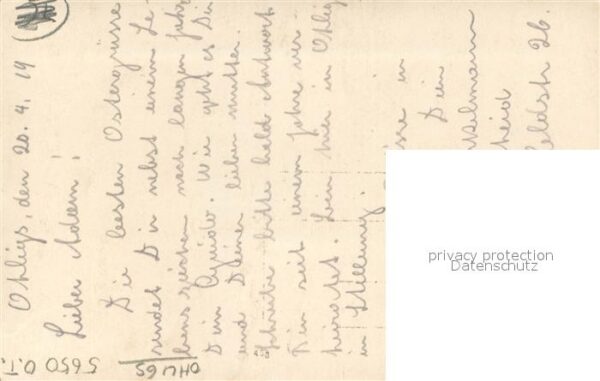 Ohligs, den 20. 4. 19
Lieber Adam!
Die besten Ostergrüsse
sendet Dir nebst einem Le-
benszeichen nach langen Jahren
Dein Guido. Wie geht es Dir
und Deiner lieben Mutter.
Schreibe bitte bald Antwort
Bin seit einem Jahre ver-
heiratet. Bin hier in Ohligs
in Stellung.
in
Dein
heid
Feldstr. 26.
5650 O.T.
OHLIGS
privacy protection
Datenschutz